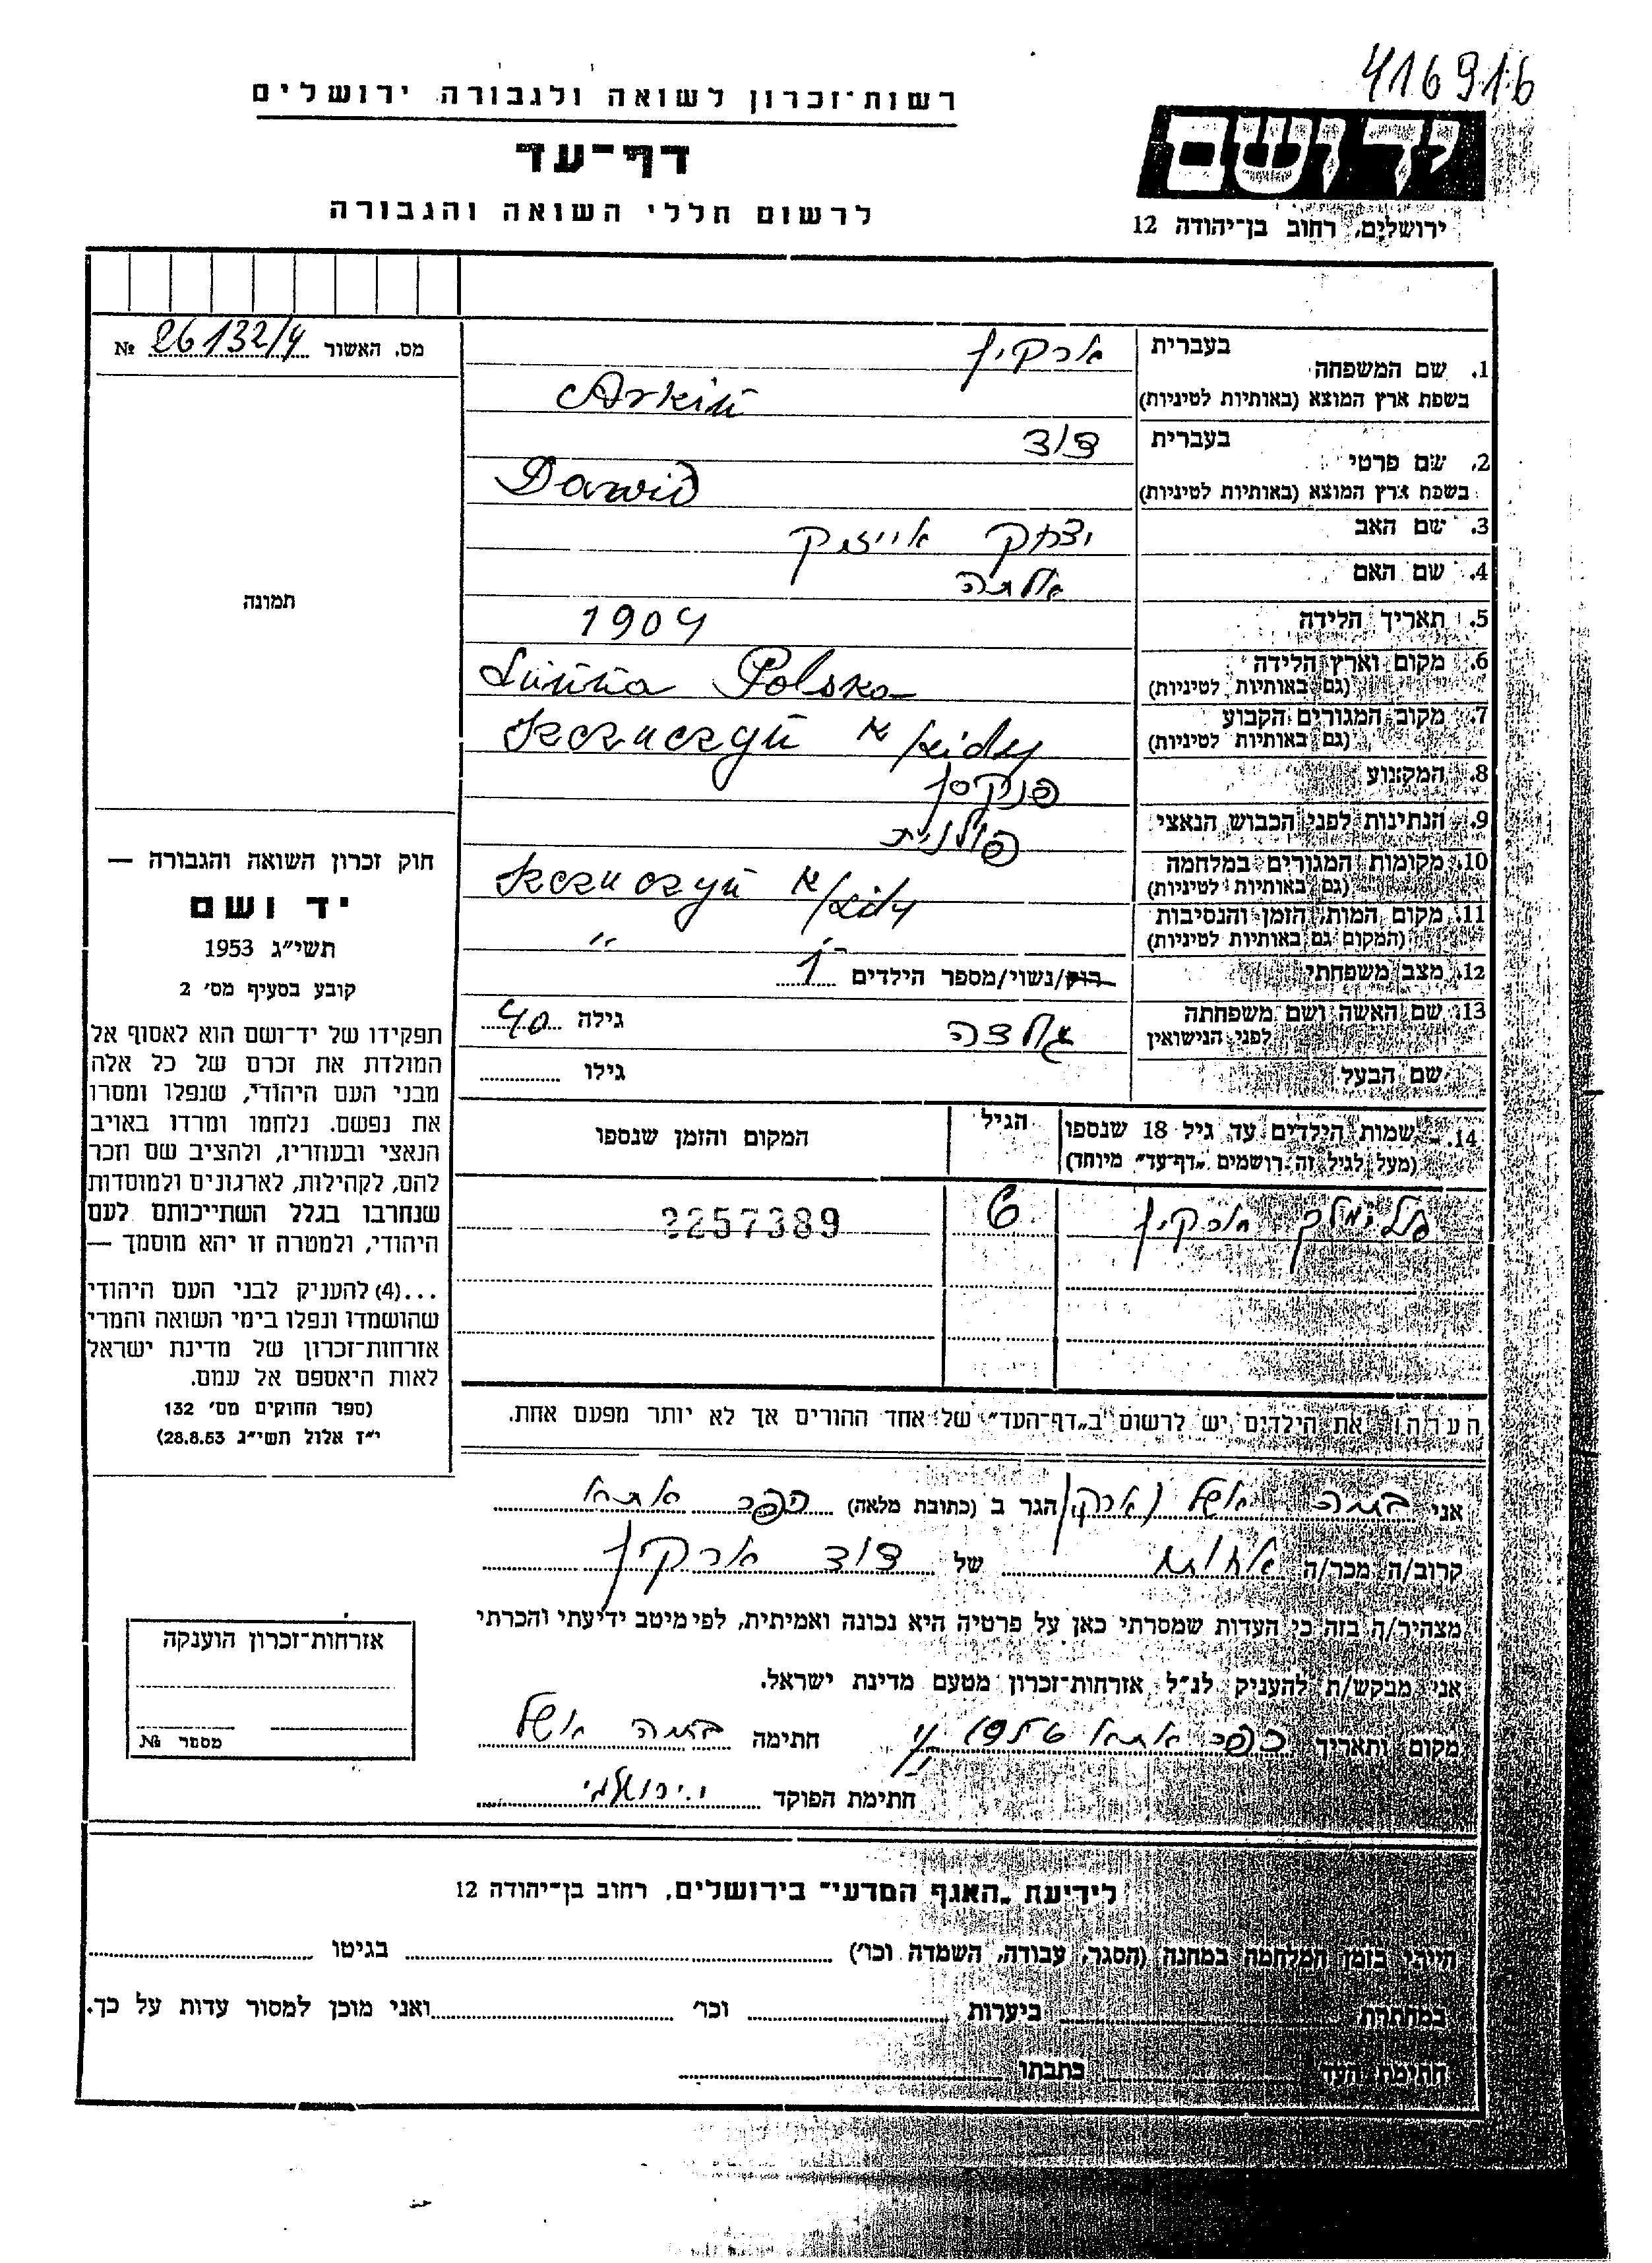 416916
רשות־זכרון לשואה ולגבורה ירושלים
דף־עד
לרשום חללי השואה והגבורה
יד ושם
ירושלים, רחוב בן־יהודה 12
מס. האשור № 26132/4
תמונה
1. שם המשפחה בעברית ארקין
בשפת ארץ המוצא (באותיות לטיניות) Arkin
2. שם פרטי בעברית דוד
בשפת ארץ המוצא (באותיות לטיניות) Dawid
3. שם האב יצחק אייזק
4. שם האם אלתה
5. תאריך הלידה 1904
6. מקום וארץ הלידה Lunna Polska
(גם באותיות לטיניות)
7. מקום המגורים הקבוע Szczuczyn
(גם באותיות לטיניות)
8. המקצוע פנקסן
9. הנתינות לפני הכבוש הנאצי פולנית
10. מקומות המגורים במלחמה Szczuczyn
(גם באותיות לטיניות)
11. מקום המות, הזמן והנסיבות " "
(המקום גם באותיות לטיניות)
12. מצב משפחתי רווק/נשוי/מספר הילדים 1
13. שם האשה ושם משפחתה גילה 40
לפני הנישואין
שם הבעל גילו
14. שמות הילדים עד גיל 18 שנספו הגיל המקום והזמן שנספו
(מעל לגיל זה רושמים "דף־עד" מיוחד)
ארקין 6 2257389
הערה: את הילדים יש לרשום ב"דף־העד" של אחד ההורים אך לא יותר מפעם אחת.
חוק זכרון השואה והגבורה —
יד ושם
תשי"ג 1953
קובע בסעיף מס' 2
תפקידו של יד־ושם הוא לאסוף אל
המולדת את זכרם של כל אלה
מבני העם היהודי, שנפלו ומסרו
את נפשם. נלחמו ומרדו באויב
הנאצי ובעוזריו, ולהציב שם וזכר
להם, לקהילות, לארגונים ולמוסדות
שנחרבו בגלל השתייכותם לעם
היהודי, ולמטרה זו יהא מוסמך —
...(4) להעניק לבני העם היהודי
שהושמדו ונפלו בימי השואה והמרי
אזרחות־זכרון של מדינת ישראל
לאות היאספם אל עמם.
(ספר החוקים מס' 132
י"ז אלול תשי"ג 28.8.53)
אני בתיה אשל (ארקין) הגר ב (כתובת מלאה) כפר אתא
קרוב/ה מכר/ה אחות של דוד ארקין
מצהיר/ה בזה כי העדות שמסרתי כאן על פרטיה היא נכונה ואמיתית, לפי מיטב ידיעתי והכרתי
אני מבקש/ת להעניק לנ"ל אזרחות־זכרון מטעם מדינת ישראל.
מקום ותאריך כפר אתא חתימה בתיה אשל
חתימת הפוקד
אזרחות־זכרון הוענקה
מספר №
לידיעת "האגף המדעי" בירושלים, רחוב בן־יהודה 12
הייתי בזמן המלחמה במחנה (הסגר, עבודה, השמדה וכו') בגיטו
במחתרת ביערות וכו' ואני מוכן למסור עדות על כך.
חתימת העד כתבתו